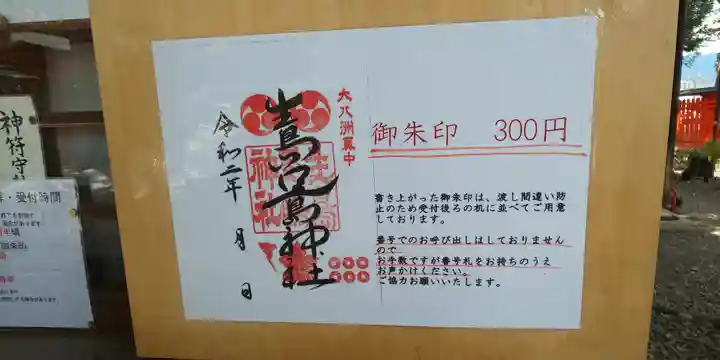 大八洲真中
生島足島神社
令和二年 月 日
御朱印 300円
書き上がった御朱印は、渡し間違い防
止のため受付後ろの机に並べてご用意
しております。
番号でのお呼び出しはしておりません
ので
お手数ですが番号札をお持ちのうえ
お声かけください。
ご協力お願いいたします。
神符守
・受付時間